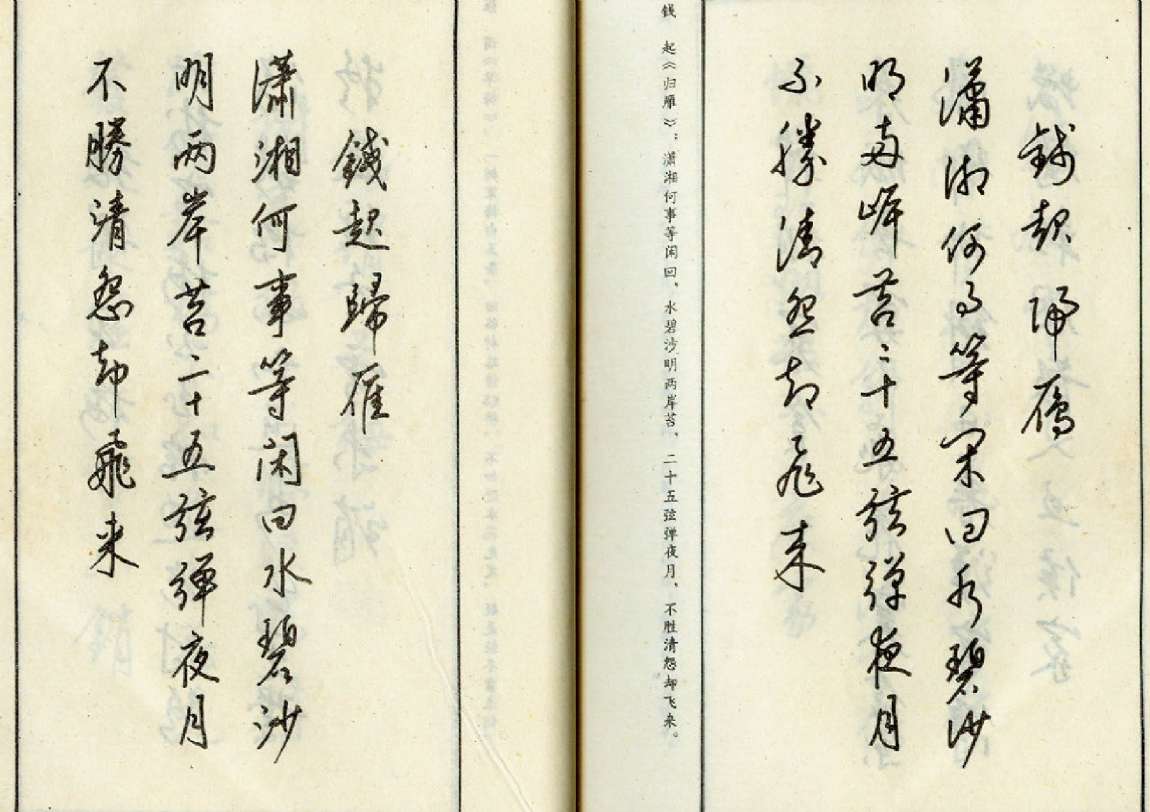 錢起歸雁
瀟湘何事等閑回水碧沙
明兩岸苔二十五弦彈夜月
不勝清怨却飛来
钱　起《归雁》：潇湘何事等闲回、水碧沙明两岸苔、二十五弦弹夜月、不胜清怨却飞来。
錢起歸雁
瀟湘何事等閑回水碧沙
明两岸苔二十五弦彈夜月
不勝清怨却飛来